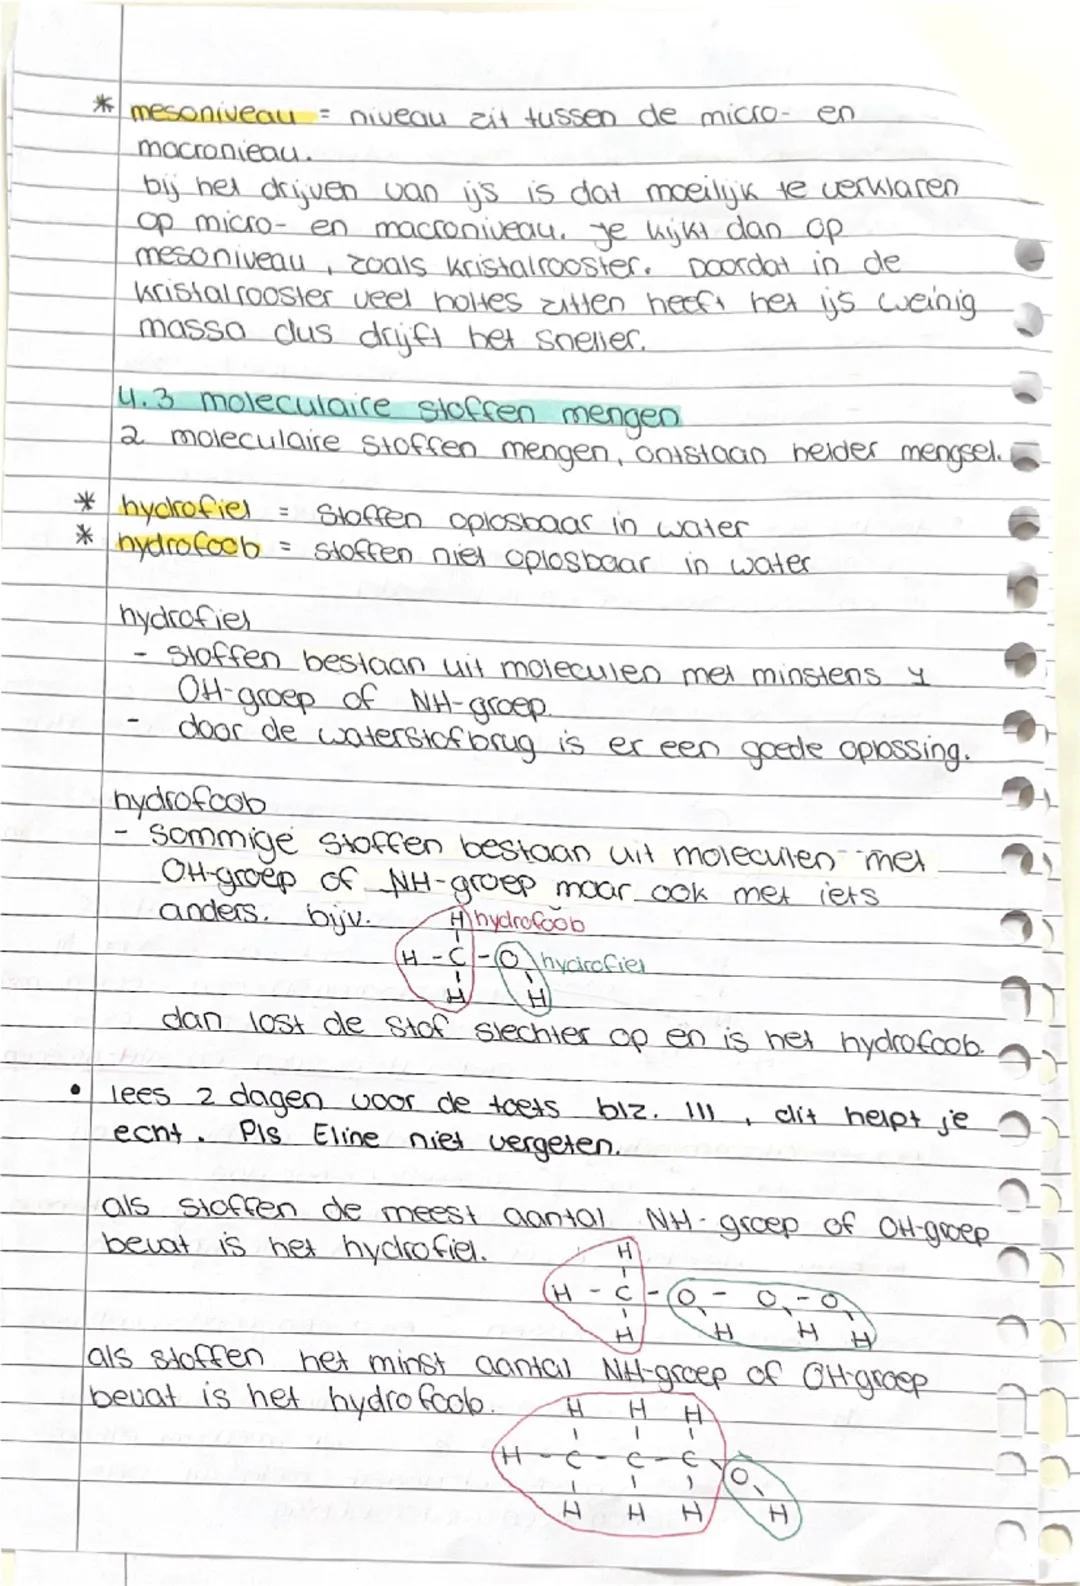 * mesoniveau = niveau zit tussen de micro- en
macronieau.
bij het drijven van ijs is dat moeilijk te verklaren
op micro- en macroniveau. je kijkt dan op
mesoniveau, zoals kristalrooster. Doordat in de
kristalrooster veel holtes zitten heeft het ijs weinig
massa dus drijft het sneller.
4.3 moleculaire stoffen mengen
2 moleculaire stoffen mengen, ontstaan helder mengsel.
* hydrofiel = stoffen oplosbaar in water
* hydrofoob = stoffen niet oplosbaar in water
hydrofiel
- stoffen bestaan uit moleculen met minstens 1
OH-groep of NH-groep.
- door de waterstofbrug is er een goede oplossing.
hydrofoob
- Sommige stoffen bestaan uit moleculen met
OH-groep of NH-groep maar ook met iets
anders. bijv.
H hydrofoob
H - C - O hydrofiel
H H
dan lost de stof slechter op en is het hydrofoob.
• lees 2 dagen voor de toets blz. 111, dit helpt je
echt. Pls Eline niet vergeten.
als stoffen de meest aantal NH-groep of OH-groep
bevat is het hydrofiel.
H
H - C - O - O - O
H H H H
als stoffen het minst aantal NH-groep of OH-groep
bevat is het hydrofoob.
H H H
H - C - C - C O
H H H H